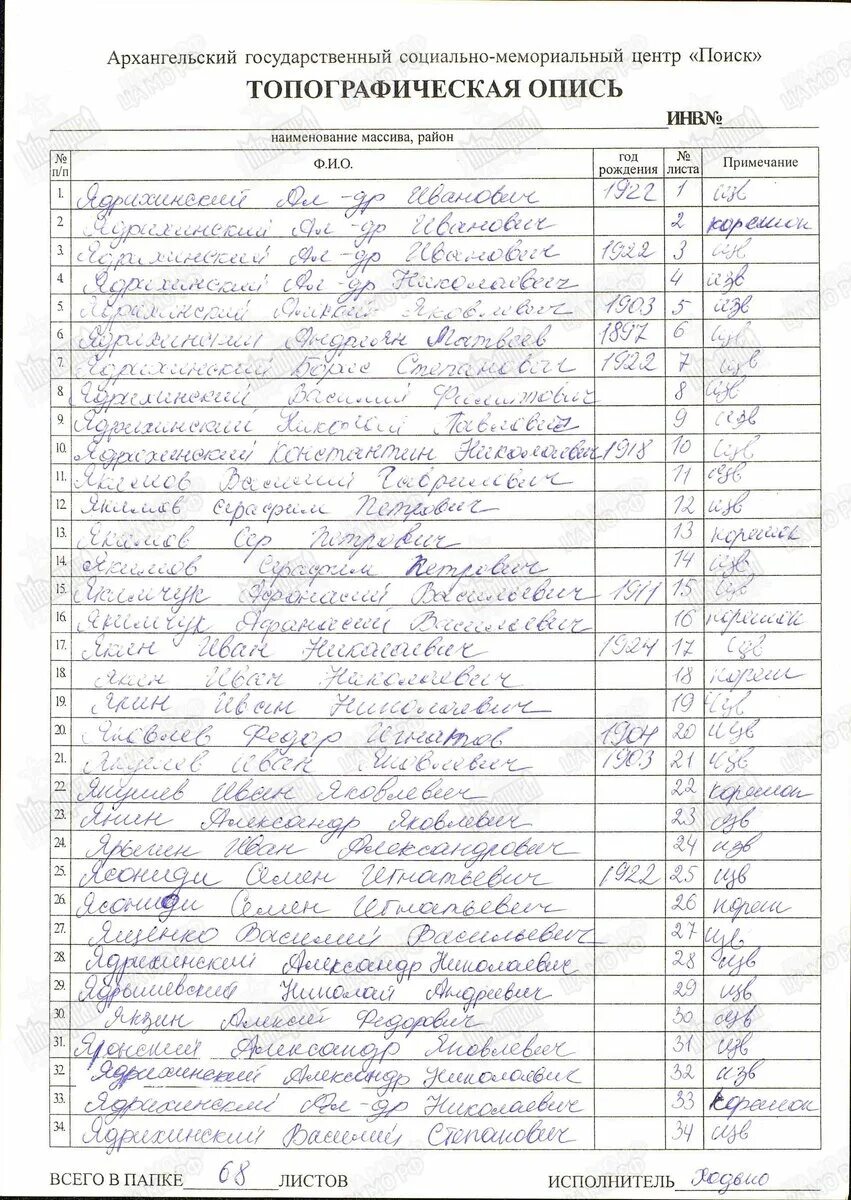 Архангельский государственный социально-мемориальный центр «Поиск»
ТОПОГРАФИЧЕСКАЯ ОПИСЬ
ИНВ.№
наименование массива, район
№ п/п Ф.И.О. год рождения № листа Примечание
1. Ядрихинский Ал-др Иванович 1922 1 изв
2 Ядрихинский Ал-др Иванович 2 корешок
3. Ядрихинский Ал-др Иванович 1922 3 изв
4. Ядрихинский Ал-др Николаевич 4 изв
5. Ядрихинский Алексей Яковлевич 1903 5 изв
6 Ядрихинский Андриян Матвеев 1897 6 изв
7. Ядрихинский Борис Степанович 1922 7 изв
8 Ядрихинский Василий 8 изв
9. Ядрихинский Николай Павлович 9 изв
10. Ядрихинский Константин Николаевич 1918 10 изв
11. Якимов Василий Гаврилович 11 изв
12. Якимов Серафим Петрович 12 изв
13. Якимов Сер Петрович 13 корешок
14. Якимов Серафим Петрович 14 изв
15. Якимчук Афанасий Васильевич 1911 15 изв
16. Якимчук Афанасий Васильевич 16 корешок
17. Якин Иван Николаевич 1924 17 изв
18 Якин Иван Николаевич 18 кореш
19. Якин Иван Николаевич 19 изв
20. Яковлев Федор Игнатов 1904 20 изв
21. Якушев Иван Яковлевич 1903 21 изв
22. Якушев Иван Яковлевич 22 корешок
23. Янин Александр Яковлевич 23 изв
24. Ярыгин Иван Александрович 24 изв
25. Ясониди Семен Игнатьевич 1922 25 изв
26. Ясониди Семен Игнатьевич 26 кореш
27. Ященко Василий Васильевич 27 изв
28. Ядрихинский Александр Николаевич 28 изв
29. Ядрышевский Николай Андреевич 29 изв
30. Якзин Алексей Федорович 30 изв
31. Яронский Александр Яковлевич 31 изв
32. Ядрихинский Александр Николаевич 32 изв
33. Ядрихинский Ал-др Николаевич 33 корешок
34. Ядрихинский Василий Степанович 34 изв
ВСЕГО В ПАПКЕ 68 ЛИСТОВ ИСПОЛНИТЕЛЬ